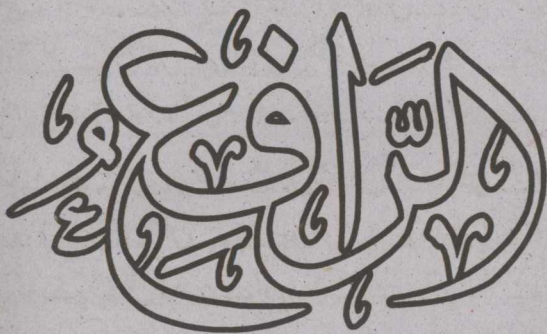 الرَّافِعُ